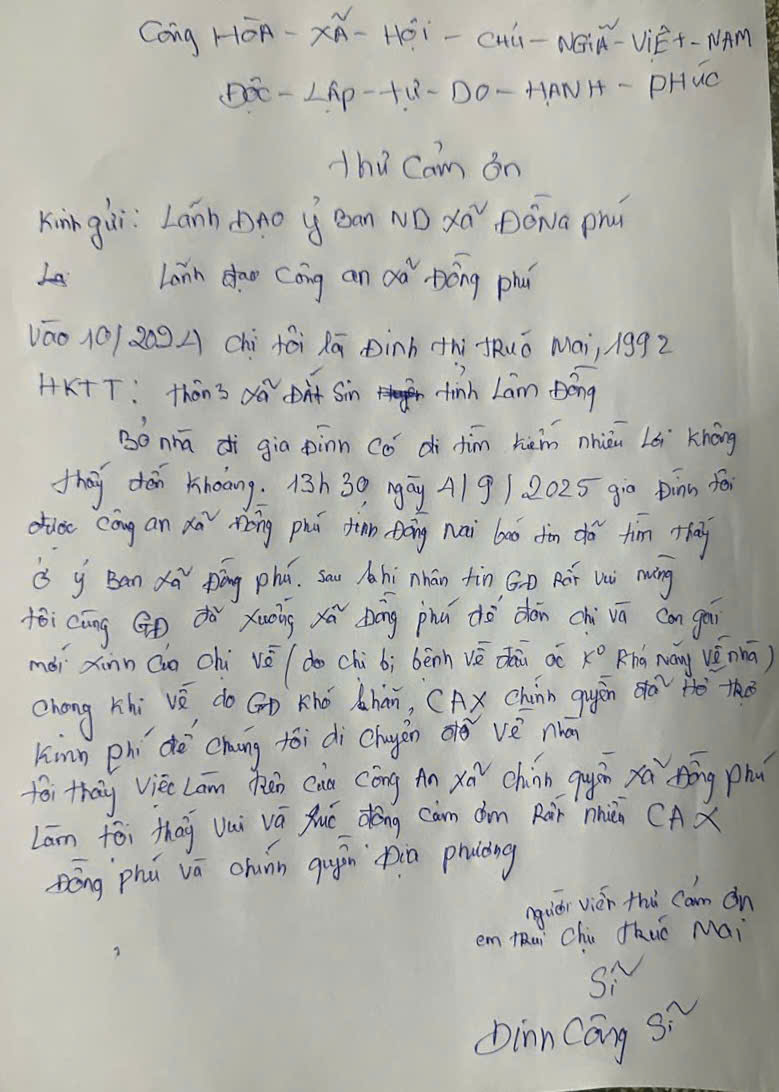 Công HÒA - XÃ - HỘI - CHỦ - NGHĨA - VIỆT - NAM
ĐỘC - LẬP - TỰ - DO - HẠNH - PHÚC
thư cảm ơn
Kính gửi: Lãnh ĐẠO ỷ Ban ND xã ĐỒNG phú
Lãnh đạo công an xã Đồng phú
Vào 10/2024 chị tôi là Đinh thị TRúc Mai, 1992
HKTT: thôn 3 xã ĐẮt Sin tỉnh Lâm Đồng
Bỏ nhà đi gia Đình có đi tìm kiếm nhiều Lới không
thấy đến khoảng. 13h 30 ngày 4/9/2025 gia Đình tôi
được công an xã Đồng phú tỉnh Đồng nai báo tin đã tìm thấy
ở ỷ Ban xã Đồng phú. sau khi nhân tin GĐ Rất vui mừng
tôi cùng GĐ đã xuống xã Đồng phú để đón chị và con gái
mới sinh của chị về (do chị bị bệnh về đầu óc Kº Khả năng về nhà)
chong khi về do GĐ khó khăn, CAX chính quyền đã Hổ thợ
Kinh phí để chúng tôi di chuyển đỗ về nhà
tôi thấy việc Làm trên của công An xã chính quyền xã Đồng phú
Làm tôi thấy vui và xúc động cảm ơm Rất nhiều CAX
Đồng phú và chính quyền Địa phương
người viết thư cảm ơn
em TRai chị TRúc Mai
Sĩ
Đinh Công Sĩ